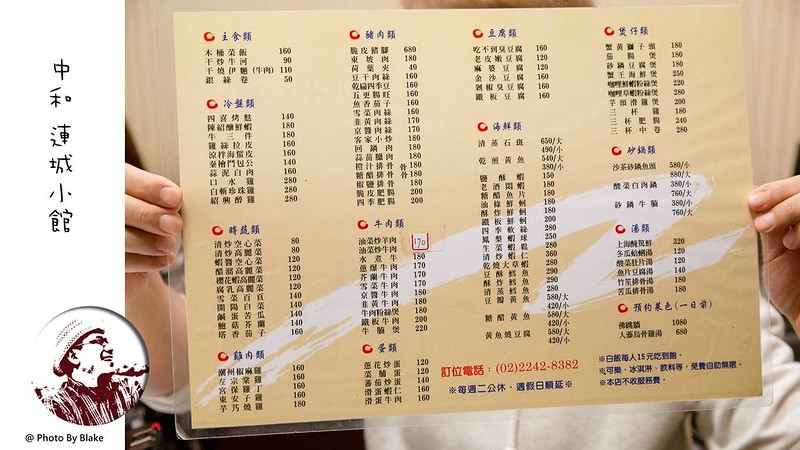 中和 連城小館
@ Photo By Blake
主食類
木桶菜飯 160
干炒牛河 90
干燒伊麵(牛肉) 110
銀絲卷 50
冷盤類
四喜烤麩 140
陳紹醺鮮蝦 180
牛三件 180
雞絲拉皮 160
涼拌海蜇皮
秦檜門包公 140
蒜泥白肉 160
口水雞 280
白斬珍珠雞 280
紹興醉雞 280
時蔬類
清炒空心菜 80
清炒高麗菜 80
蝦醬空心菜 120
醋溜高麗菜 120
櫻花蝦高麗菜
腐乳高麗菜 120
雪菜百頁 140
開陽白菜 140
鹹蛋苦瓜 140
鮑菇芥蘭 140
塔香茄子 160
雞肉類
潮州椒麻雞 160
左宗棠雞 160
宮保雞丁 160
東安子雞 160
芋艿燒雞 180
豬肉類
脆皮豬腳 680
東坡肉 180
荷葉夾 40
豆干肉絲 160
乾扁四季豆 160
五更腸旺 160
魚香茄子 160
雪菜肉絲 160
韭黃肉絲 160
京醬肉絲 160
客家小炒 180
回鍋肉 180
蒜苗臘肉 180
橙汁排骨 180
糖醋排骨 180
椒鹽排骨 180
脆皮肥腸 200
四季肥腸 200
牛肉類
油菜炒羊肉 170
油菜炒牛肉
水煮牛 180
蔥爆牛肉 170
芥蘭牛肉 170
雪菜牛肉 170
京醬牛肉 170
韭黃牛肉 180
牛肉粉絲煲 180
鐵板牛肉 200
牛腩煲 220
蛋類
蔥花炒蛋 120
菜脯蛋 120
蕃茄炒蛋 140
滑蛋蝦仁 160
滑蛋牛肉 160
豆腐類
吃不到臭豆腐 160
老皮嫩豆腐 120
麻婆豆腐 120
金沙豆腐 160
剁椒臭豆腐 160
鐵板豆腐 160
海鮮類
清蒸石斑 650/大
490/小
乾煎黃魚 540/大
380/小
鹽酥蝦 150
老酒悶蝦 180
糖醋魚片 180
油條鮮蚵 180
酥炸鮮蚵 180
鐵板鮮蚵 200
四季軟絲 280
鳳梨蝦球 250
生菜蝦鬆 280
清炒蝦仁 360
乾燒大草蝦 280
豆酥鱈魚 280
酥炸鱈魚 280
清蒸鱈魚 280
豆瓣黃魚 580/大
420/小
糖醋黃魚 580/大
420/小
黃魚燒豆腐 580/大
420/小
煲仔類
蟹黃獅子頭 180
茄腸煲 180
砂鍋豆腐煲 180
蟹王海鮮煲 250
咖哩鮮蝦粉絲煲 220
咖哩草蝦粉絲煲 280
芋頭滑雞煲 200
三杯雞 180
三杯肥腸 180
三杯中卷 280
砂鍋類
沙茶砂鍋魚頭 580/小
880/大
酸菜白肉鍋 380/小
760/大
砂鍋牛腩 380/小
760/大
湯類
上海醃篤鮮 320
多瓜蛤蜊湯 120
酸菜肚片湯 120
魚片豆腐湯 140
竹笙排骨湯 180
苦瓜排骨湯 180
預約菜色(一日前)
佛跳牆 1080
人蔘烏骨雞湯 680
訂位電話：(02)2242-8382
※每週二公休，遇假日順延※
※白飯每人15元吃到飽。
※可樂、冰淇淋、飲料等，免費自助無限。
※本店不收服務費。